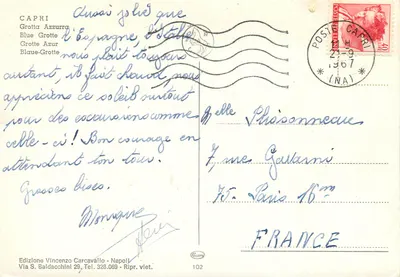 CAPRI
Grotta Azzurra
Blue Grotto
Grotte Azur
Blaue-Grotte
Aussi joli que
l'Espagne, l'Italie
nous plait toujours
autant, il fait chaud, nous
apprécions ce soleil surtout
pour des excursions comme
celle-ci! Bon courage en
attendant ton tour.
Grosses bises.
Monique
Edizione Vincenzo Carcavallo - Napoli
Via S. Baldacchini 29, Tel. 325.069 - Ripr. viet.
102
POSTE CAPRI
23-9
1967
(NA)
Melle Plissonneau
7, rue Gavarni
75. Paris 16me
FRANCE